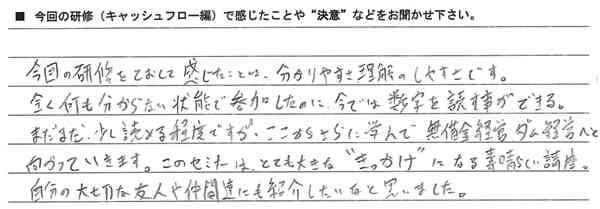 ■ 今回の研修（キャッシュフロー編）で感じたことや“決意”などをお聞かせ下さい。
今回の研修をとおして感じたことは、分かりやすさ理解のしやすさです。
全く何も分からない状態で参加したのに、今では数字を読む事ができる。
まだまだ、少し読める程度ですが、ここからさらに学んで無借金経営ダム経営へと
向かっていきます。このセミナーは、とても大きな“きっかけ”になる素晴らしい講座。
自分の大切な友人や仲間達にも紹介したいなと思いました。